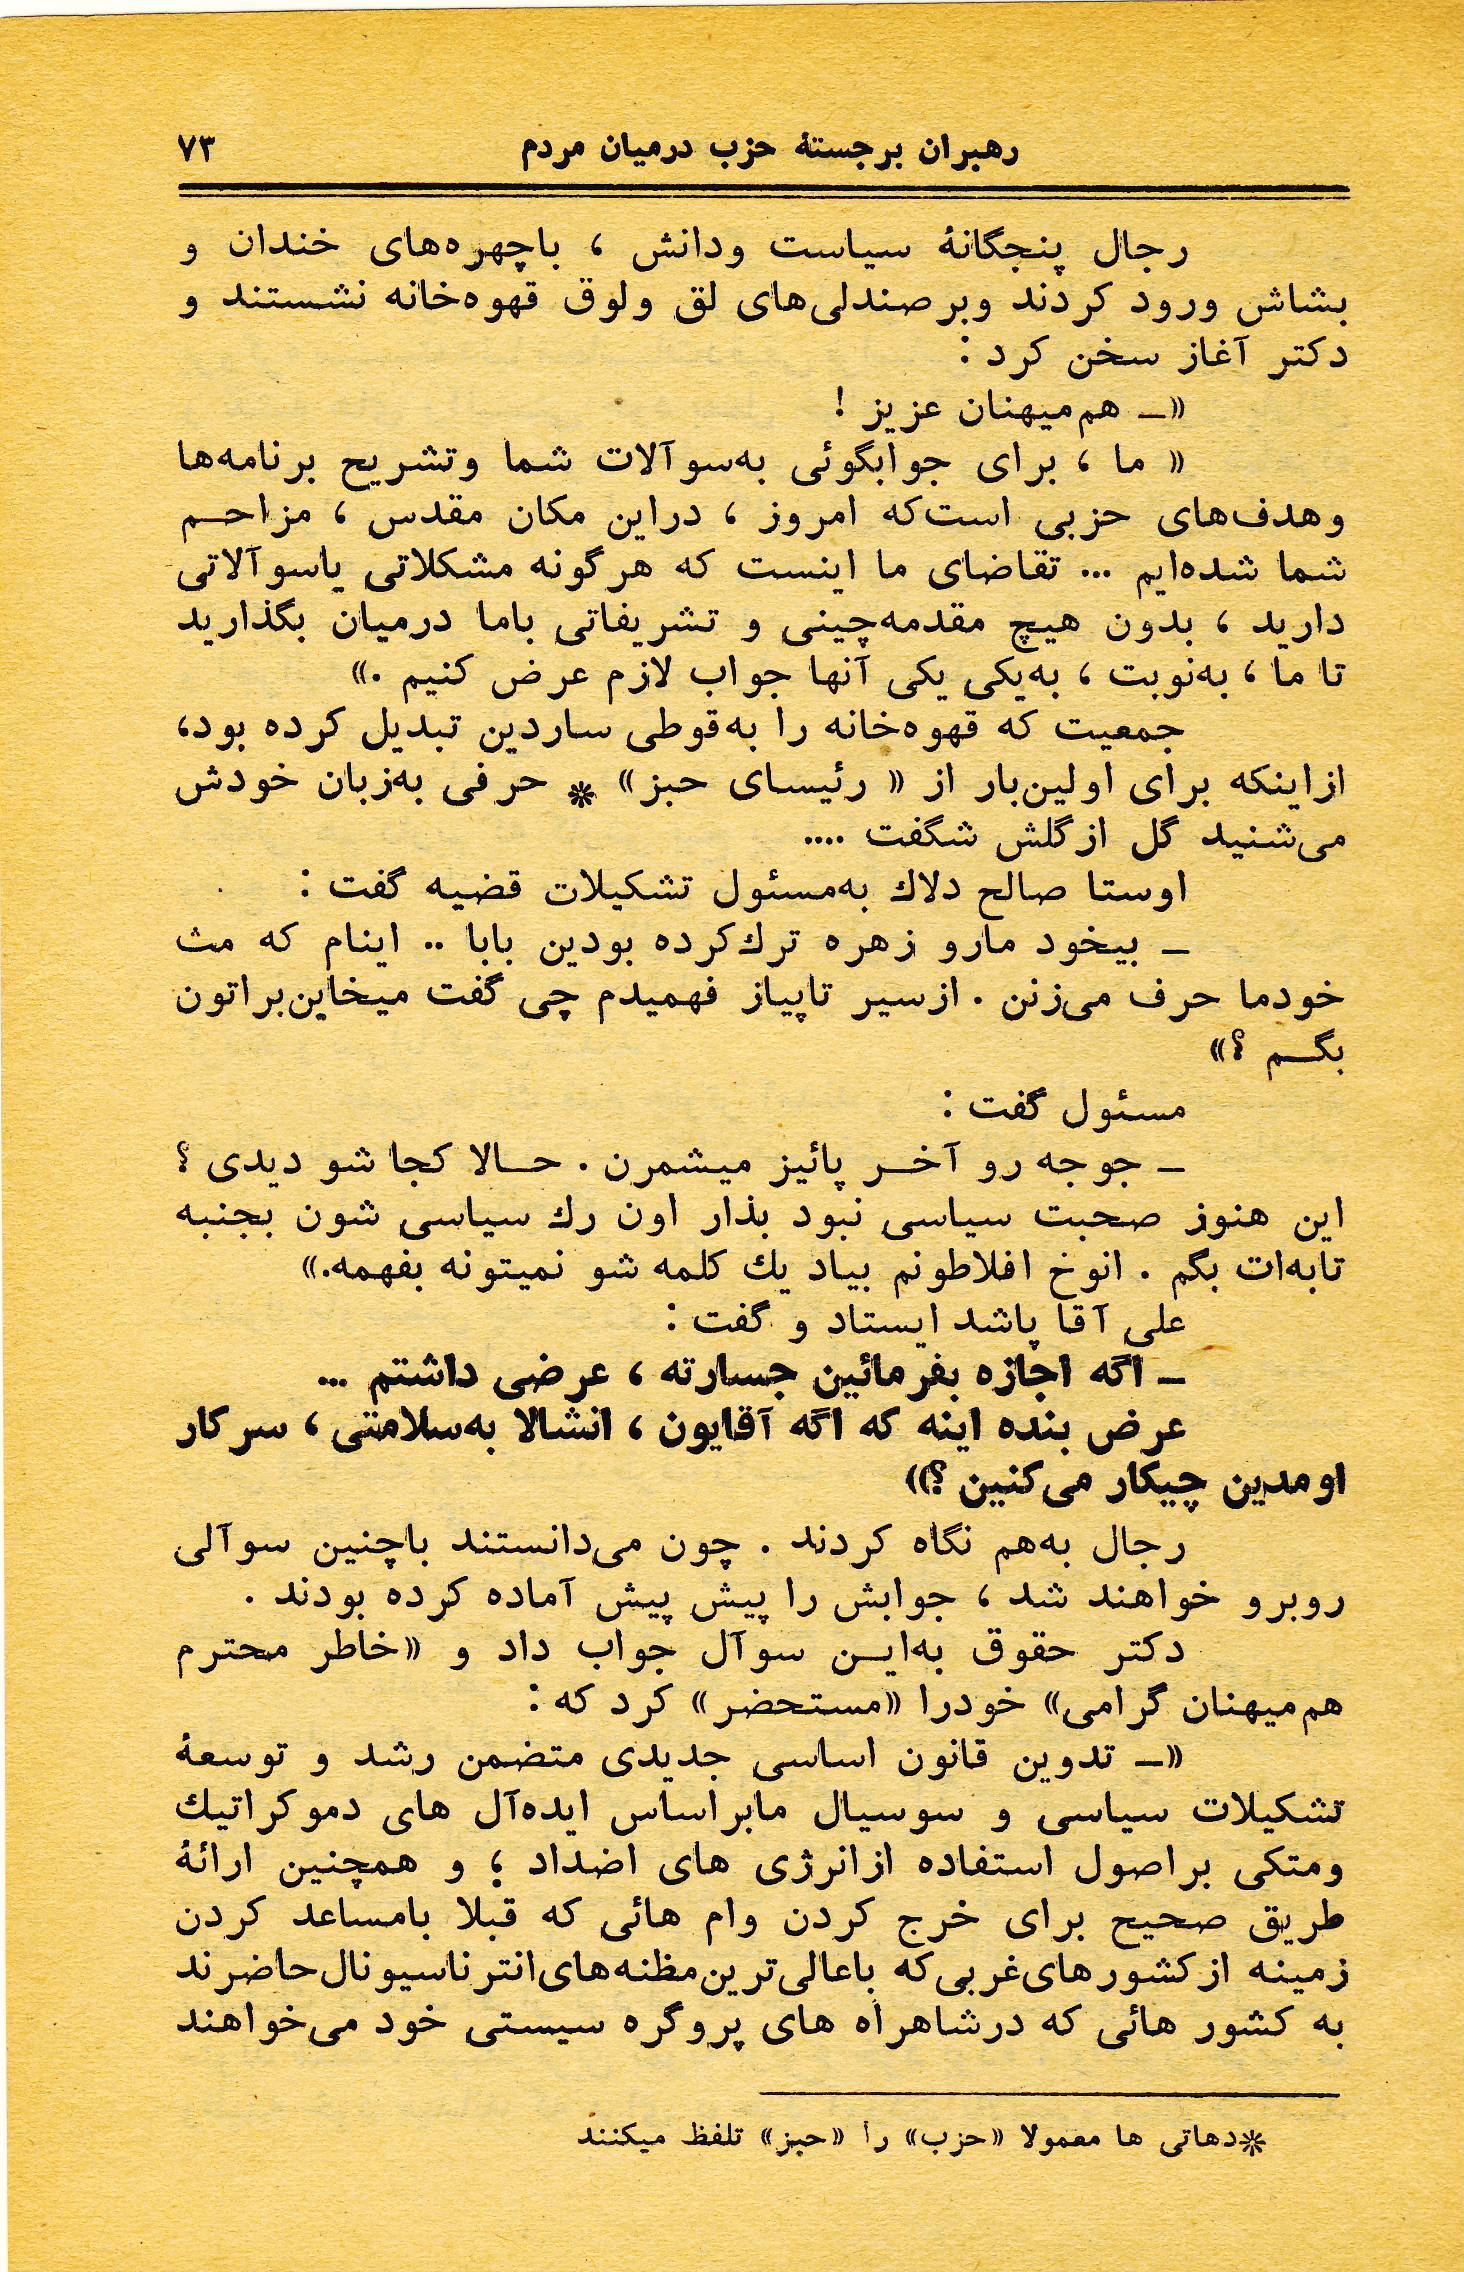 رهبران برجستهٔ حزب درمیان مردم ۷۳
رجال پنجگانهٔ سیاست ودانش ، باچهره‌های خندان و
بشاش ورود کردند وبر صندلی‌های لق ولوق قهوه‌خانه نشستند و
دکتر آغاز سخن کرد :
«ـ هم‌میهنان عزیز !
« ما ، برای جوابگوئی به‌سوآلات شما وتشریح برنامه‌ها
وهدف‌های حزبی است‌که امروز ، دراین مکان مقدس ، مزاحـم
شما شده‌ایم ... تقاضای ما اینست که هرگونه مشکلاتی یاسوآلاتی
دارید ، بدون هیچ مقدمه‌چینی و تشریفاتی باما درمیان بگذارید
تا ما ، به‌نوبت ، به‌یکی یکی آنها جواب لازم عرض کنیم .»
جمعیت که قهوه‌خانه را به‌قوطی ساردین تبدیل کرده بود،
ازاینکه برای اولین‌بار از « رئیسای حبز» * حرفی به‌زبان خودش
می‌شنید گل ازگلش شگفت ....
اوستا صالح دلاك به‌مسئول تشکیلات قضیه گفت :
ـ بیخود مارو زهره ترك‌کرده بودین بابا .. اینام که مث
خودما حرف می‌زنن . ازسیر تاپیاز فهمیدم چی گفت میخاین‌براتون
بگـم ؟»
مسئول گفت :
ـ جوجه رو آخـر پائیز میشمرن . حـالا کجا شو دیدی ؟
این هنوز صحبت سیاسی نبود بذار اون رك سیاسی شون بجنبه
تابه‌ات بگم . انوخ افلاطونم بیاد یك کلمه شو نمیتونه بفهمه.»
علی آقا پاشد ایستاد و گفت :
ـ اگه اجازه بفرمائین جسارته ، عرضی داشتم ...
عرض بنده اینه که اگه آقایون ، انشالا به‌سلامتی ، سرکار
اومدین چیکار می‌کنین ؟»
رجال به‌هم نگاه کردند . چون می‌دانستند باچنین سوآلی
روبرو خواهند شد ، جوابش را پیش پیش آماده کرده بودند .
دکتر حقوق به‌ایـن سوآل جواب داد و «خاطر محترم
هم‌میهنان گرامی» خودرا «مستحضر» کرد که :
«ـ تدوین قانون اساسی جدیدی متضمن رشد و توسعهٔ
تشکیلات سیاسی و سوسیال مابراساس ایده‌آل های دموکراتیك
ومتکی براصول استفاده ازانرژی های اضداد ؛ و همچنین ارائهٔ
طریق صحیح برای خرج کردن وام هائی که قبلا بامساعد کردن
زمینه ازکشورهای‌غربی‌که باعالی‌ترین‌مظنه‌های‌انترناسیونال‌حاضرند
به کشور هائی که درشاهراه های پروگره سیستی خود می‌خواهند
*دهاتی ها معمولا «حزب» را «حبز» تلفظ میکنند